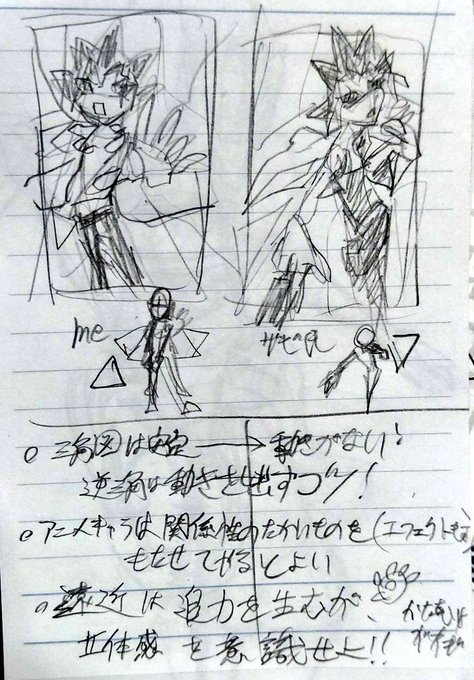 me
ガゼの民
○ 三角図は安定 → 動きがない!
逆三角は動きを出すっ!
○ アニメキャラは関係性のたかいものを(エフェクトも)
もたせてやるとよい
○ 遠近は迫力を生むが、
立体感を意識せよ!!